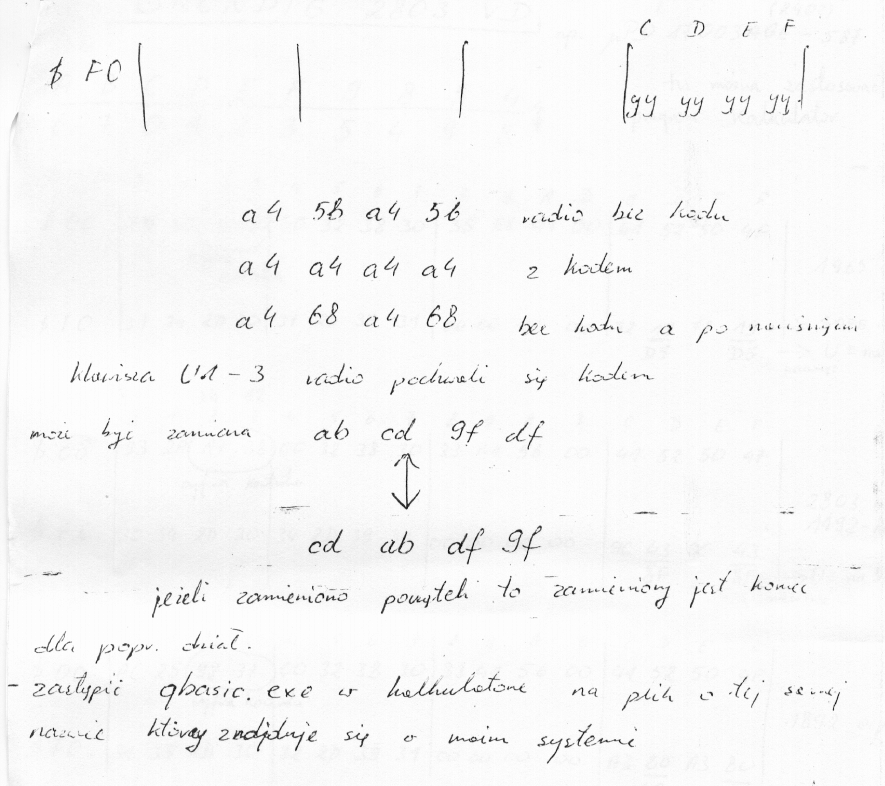 C D E F
$ FC
yy yy yy yy
a4 5b a4 5b radio bez kodu
a4 a4 a4 a4 z kodem
a4 68 a4 68 bez kodu a po naciśnięciu
klawisza 1-3 radio pochwali się kodem
może być zamiana ab cd 9f df
cd ab df 9f
jeżeli zamieniono początek to zamieniony jest koniec
dla popr. dział.
- zastąpić qbasic.exe w kalkulatorze na plik o tej samej
nazwie który znajduje się w moim systemie